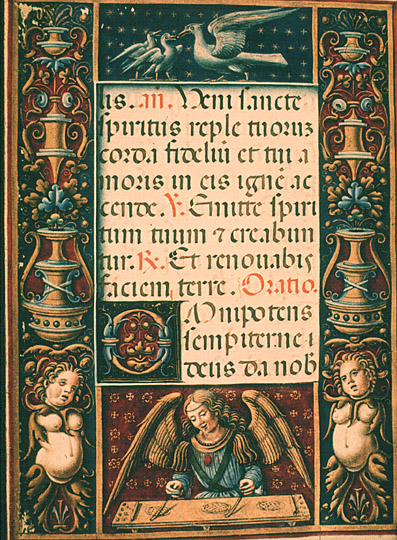 lis. an. Veni sancte
spiritus reple tuorum
corda fideliū et tui a
moris in eis ignē ac
cende. V. Emitte spiri
tum tuum ⁊ creabun
tur. R. Et renouabis
faciem terre. Oratio.
Omnipotens
sempiterne
deus da nob